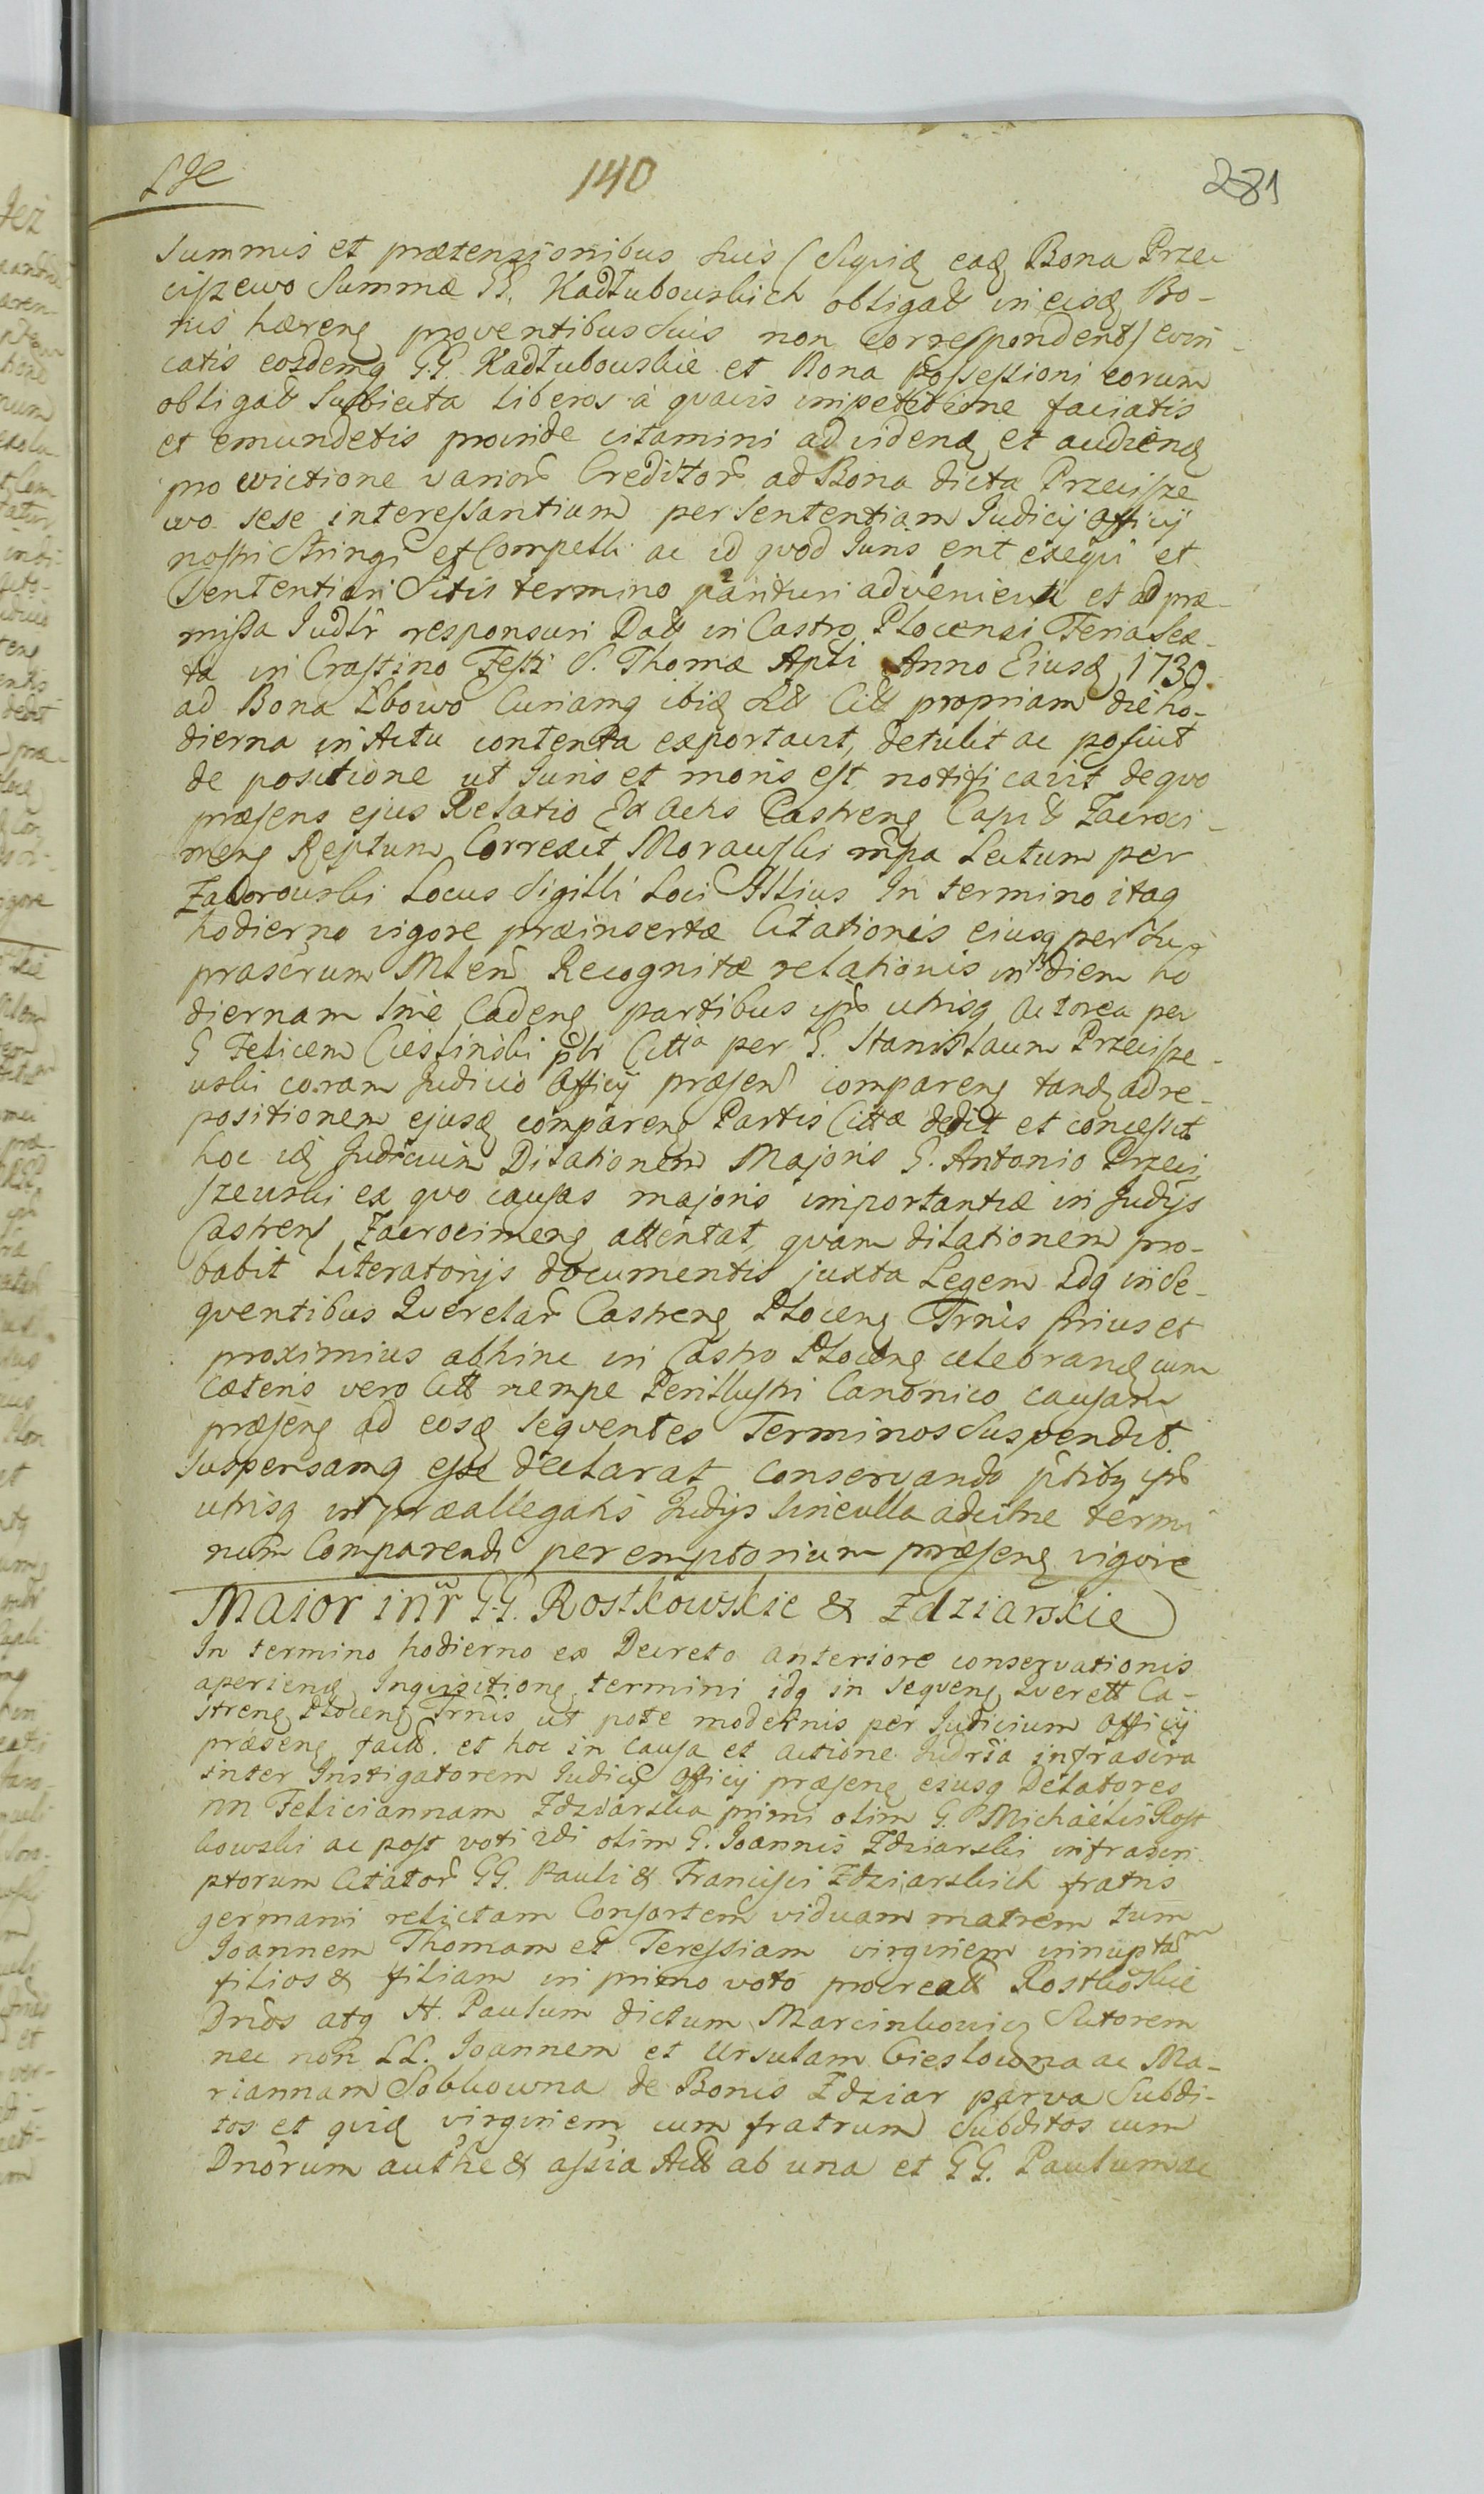 140
281
summis et prætensionibus suis (Siquid eaq Bona Przeci
iszewo Summæ GG. Kadłubowskich obligat in eisq Bo-
nis hæreng proventibus suis non correspondent) evin-
catis eosdemq GG Kadłubowskie et Bona possessioni eorum
obligat Subiecta liberos à quavis impetitione faciatis
et emundetis proinde citamini ad videnq et audienq
pro evictione varior Creditor ad Bona dicta Przecisze
wo sese interessantium per sententiam Judicij Officij
nostri Stringi et Compelli ac id quod Juris erit exequi et
Sententiari Sitis termino parituri advenienti et ad præ-
missa Judlr responsuri Datt in Castro Plocensi Feria Sex-
ta in Crastino Festi S. Thomæ Apti Anno Eiusq 1730
ad Bona Łbowo Curiamq ibiq Citt propriam die ho-
dierna in Actu contenta exportavit, detulit ac posuit
de positione ut Juris et moris est notificavit de quo
præsens ejus Relatio Ex Actis Castreng Capit Zacroci-
meng Reptum Correxit Morawski mpa Lectum per
Zaborowski Locus Sigilli Loci Illius In termino itaq
hodierno vigore præinsertæ Citationis eiusq per Su
prascrum Mlen Recognitæ relationis in diem ho
diernam Sme Cadeng partibus ipis utrisq Actorea per
G Felicem Cieslinski pbt Citta per G. Stanislaum Przecisze-
wski coram Judicio Officij præsen compareng tandq ad re-
positionem ejusq compareng Partis Cittæ dedit et concessit
hoc idq Judicium Dilationem Majoris G. Antonio Przeci
szewski ex quo causas majoris importantiæ in Judijs
Castrens Zacrocimeng attentat, quam dilationem pro-
babit literatorijs documentis juxta Legem Idq in se-
quentibus Querelar Castreng Ploceng Trnis prius et
proximius abhinc in Castro Ploceng celebrandq cum
Cæteris vero Citt nempe Perillustri Canonico causam
præseng ad eosq sequentes Terminos Suspendit
suspensamq esse declarat conservando ptibq ipis
utrisq in præallegatis Judijs sine ulla adcitne termi
num Comparendi peremptorium præseng vigore
Maior intr GG. Rostkowskie & Zdziarskie
In termino hodierno ex Decreto anteriore conservationis
aperienq Inquisitiong termini idq in sequeng Querell Ca-
streng Ploceng Trnis ut pote modernis per Judicium Officij
præseng fact. et hoc in Causa et actione Judria infrascra
inter Instigatorem Judicij Officij præseng ejusq Delatores
nn Feliciannam Zdziarska primi olim G. Michaelis Rost
kowski ac post voti 2di olim G. Joannis Zdziarski infrascri
ptorum Citator GG. Pauli & Francisci Zdziarskich fratris
germani relictam Consortem viduam matrem tum
Joannem Thomam et Teressiam virginem innuptam
filios & filiam in primo voto procreatt Rostkoskie
Dnos atq H. Paulum dictum Marcinkowicz Sutorem
nec non LL. Joannem et Ursulam Cieslowna ac Ma-
riannam Sobkowna de Bonis Zdziar parva Subdi-
tos et quidq virginem cum fratrum Subditos cum
Dnorum authe & assia Actt ab una et GG. Paulum ac